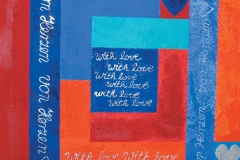 von Herzen von Herzen
with love
with love
with love
with love
with love
with love
Herzen
with love with love